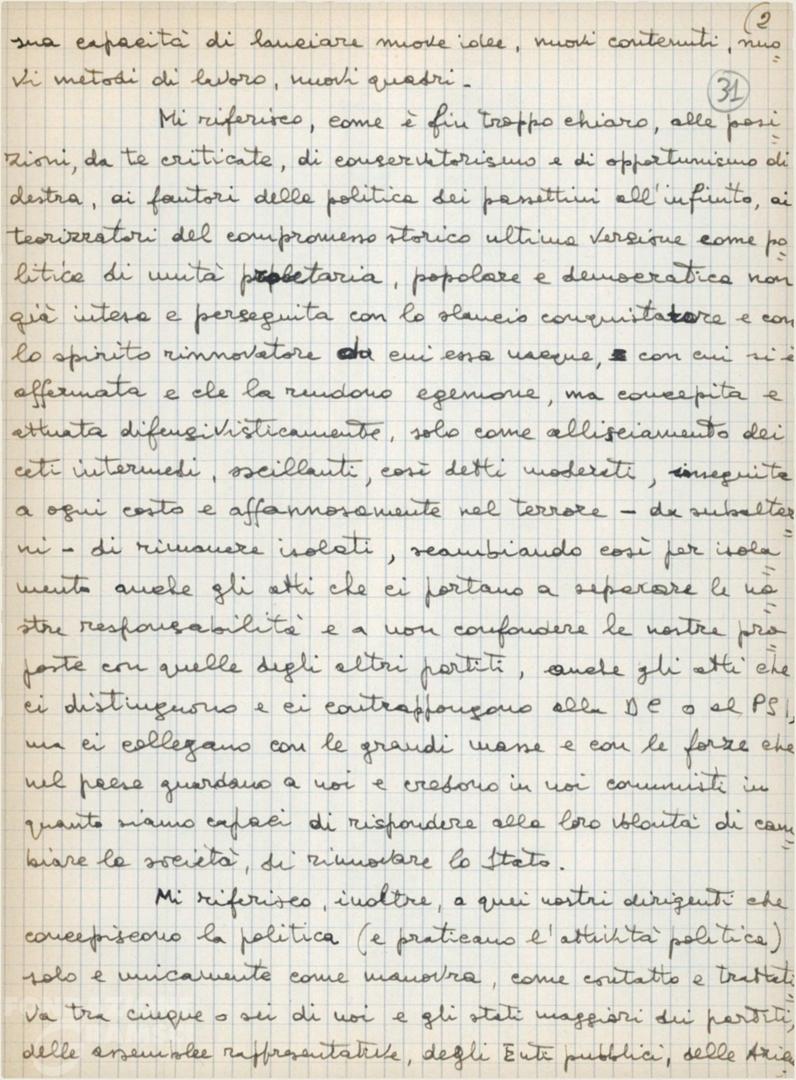 (2
sua capacità di lanciare nuove idee, nuovi contenuti, nuo=
vi metodi di lavoro, nuovi quadri.
31
Mi riferisco, come è fin troppo chiaro, alle posi=
zioni, da te criticate, di conservatorismo e di opportunismo di
destra, ai fautori della politica dei passettini all'infinito, ai
teorizzatori del compromesso storico ultima versione come po=
litica di unità proletaria, popolare e democratica non
già intesa e perseguita con lo slancio conquistatore e con
lo spirito rinnovatore da cui essa nacque, con cui si è
affermata e che la rendono egemone, ma concepita e
attuata difensivisticamente, solo come allisciamento dei
ceti intermedi, oscillanti, così detti moderati, inseguita
a ogni costo e affannosamente nel terrore - da subalter=
ni - di rimanere isolati, scambiando così per isola=
mento anche gli atti che ci portano a separare le no=
stre responsabilità e a non confondere le nostre pro=
poste con quelle degli altri partiti, anche gli atti che
ci distinguono e ci contrappongono alla DC o al PSI,
ma ci collegano con le grandi masse e con le forze che
nel paese guardano a noi e credono in noi comunisti in
quanto siamo capaci di rispondere alla loro volontà di cam=
biare la società, di rinnovare lo Stato.
Mi riferisco, inoltre, a quei nostri dirigenti che
concepiscono la politica (e praticano l'attività politica)
solo e unicamente come manovra, come contatto e trattati=
va tra cinque o sei di noi e gli stati maggiori dei partiti,
delle assemblee rappresentative, degli Enti pubblici, delle Azien